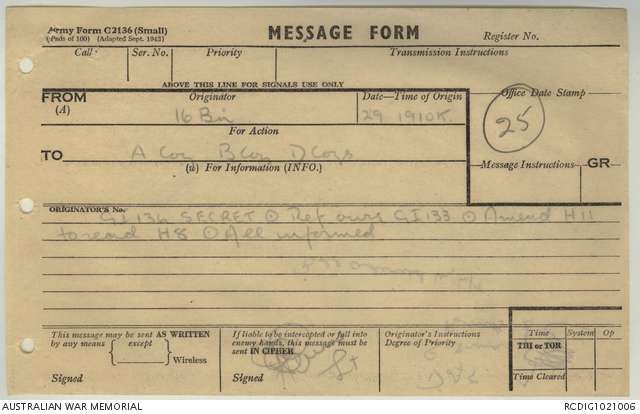 Army Form C2136 (Small)
(Pads of 100) (Adapted Sept. 1943)
MESSAGE FORM
Register No.
Call Ser. No. Priority Transmission Instructions
ABOVE THIS LINE FOR SIGNALS USE ONLY
FROM Originator Date—Time of Origin Office Date Stamp
(A) 16 Bn 29 1910K 25
For Action
TO A Coy B Coy D Coys
(W) For Information (INFO.) Message Instructions GR
ORIGINATOR'S No.
GI 134 SECRET ⊙ Ref ours GI 133 ⊙ Amend H11
to read H8 ⊙ All informed
This message may be sent AS WRITTEN
by any means except
Wireless
Signed
If liable to be intercepted or fall into
enemy hands, this message must be
sent IN CIPHER
Signed
Originator's Instructions
Degree of Priority
Time System Op
THI or TOR
Time Cleared
AUSTRALIAN WAR MEMORIAL RCDIG1021006